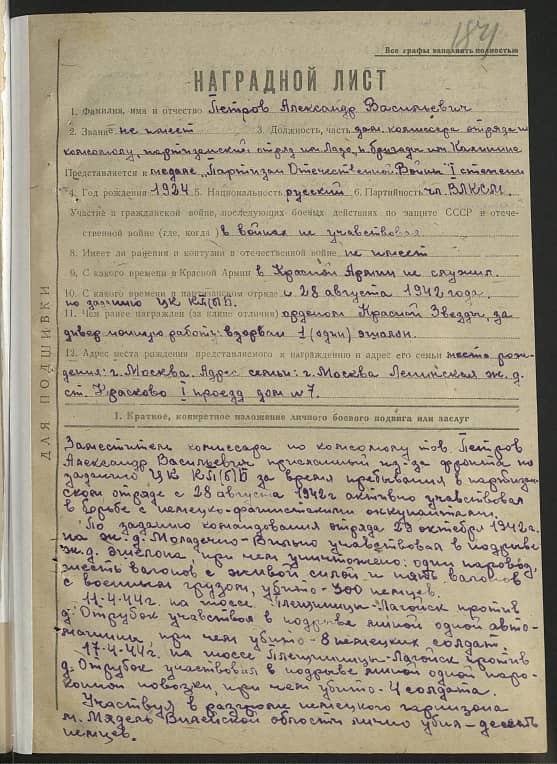 184
Все графы заполнить полностью
НАГРАДНОЙ ЛИСТ
1. Фамилия, имя и отчество Петров Александр Васильевич
2. Звание не имеет 3. Должность, часть зам. комиссара отряда по
комсомолу, партизанский отряд им Лазо, бригады им Калинина
Представляется к медале „Партизан Отечественной Войны" I степени
4. Год рождения 1924 5. Национальность русский 6. Партийность чл. ВЛКСМ.
Участие в гражданской войне, последующих боевых действиях по защите СССР и отече-
ственной войне (где, когда) в войнах не учавствовал
8. Имеет ли ранения и контузии в отечественной войне не имеет
9. С какого времени в Красной Армии в Красной Армии не служил.
10. С какого времени в партизанском отряде с 28 августа 1942 года.
по заданию ЦК КП(б)Б.
11. Чем ранее награжден (за какие отличия) орденом Красной Звезды, за
диверсионную работу: взорвал 1 (один) эшалон.
12. Адрес места рождения представляемого к награждению и адрес его семьи место рож-
дения: г. Москва. Адрес семьи: г. Москва Ленинская ж. д.
ст. Красково I проезд дом № 7.
ДЛЯ ПОДШИВКИ
I. Краткое, конкретное изложение личного боевого подвига или заслуг
Заместитель комиссара по комсомолу тов. Петров
Александр Васильевич присланный из-за фронта по
заданию ЦК КП(б)Б за время пребывания в партизан-
ском отряде с 28 августа 1942г активно учавствовал
в борьбе с немецко-фашистскими оккупантами.
По заданию командования отряда 29 октября 1942г.
на ж. д. Молодечно-Вильно учавствовал в подрыве
ж.д. эшелона при чем уничтожено: один паровоз,
шесть вагонов с живой силой и пять вагонов
с военным грузом, убито - 300 немцев.
11-4-44г. на шоссе Плещиницы-Лагойск против
д. Отрубок учавствовал в подрыве миной одной авто-
машины, при чем убито - 8 немецких солдат.
17-4-44г. на шоссе Плещиницы-Лагойск против
д. Отрубок участвовал в подрыве миной одной паро-
конной повозки, при чем убито - 4 солдата.
Участвуя в разгроме немецкого гарнизона
м. Мядель Вилейской области лично убил - десять
немцев.